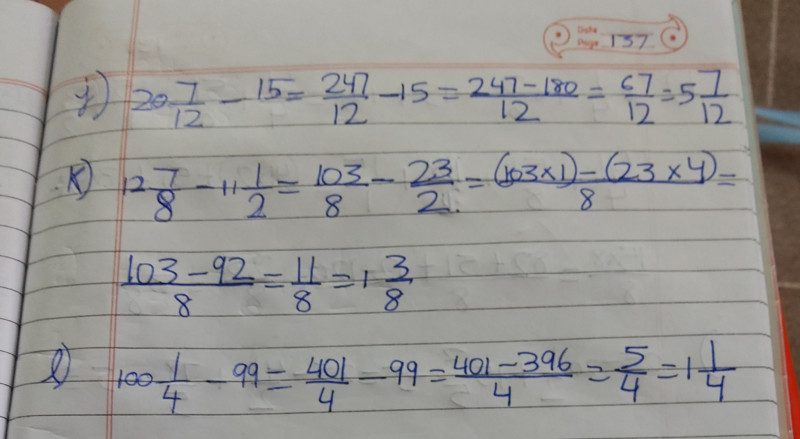 Date
Page 137
j) 20 7/12 - 15 = 247/12 - 15 = 247-180/12 = 67/12 = 5 7/12
K) 12 7/8 - 11 1/2 = 103/8 - 23/2. = (103×1) - (23×4)/8 =
103-92/8 = 11/8 = 1 3/8
l) 100 1/4 - 99 = 401/4 - 99 = 401-396/4 = 5/4 = 1 1/4